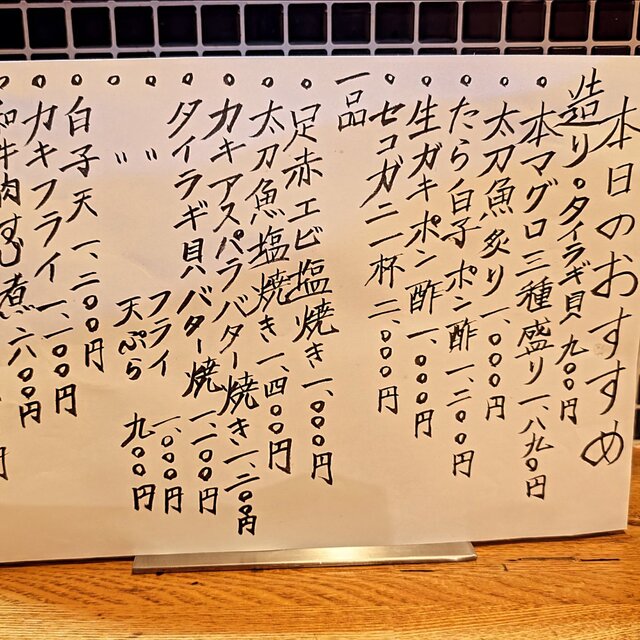 本日のおすすめ
造り。タイラギ貝 九〇〇円
本マグロ三種盛り 一、八九〇円
。太刀魚炙り 一、〇〇〇円
。たら白子ポン酢 一、二〇〇円
。生ガキポン酢 一、〇〇〇円
。セコガニ一杯 二、〇〇〇円
一品
。足赤エビ塩焼き 一、〇〇〇円
。太刀魚塩焼き 一、四〇〇円
。カキアスパラバター焼き 一、二〇〇円
。タイラギ貝バター焼 一、一〇〇円
。 〃 フライ 一、〇〇〇円
。 〃 天ぷら 九〇〇円
。白子天 一、二〇〇円
。カキフライ 一、一〇〇円
。和牛肉すじ煮 八〇〇円
円